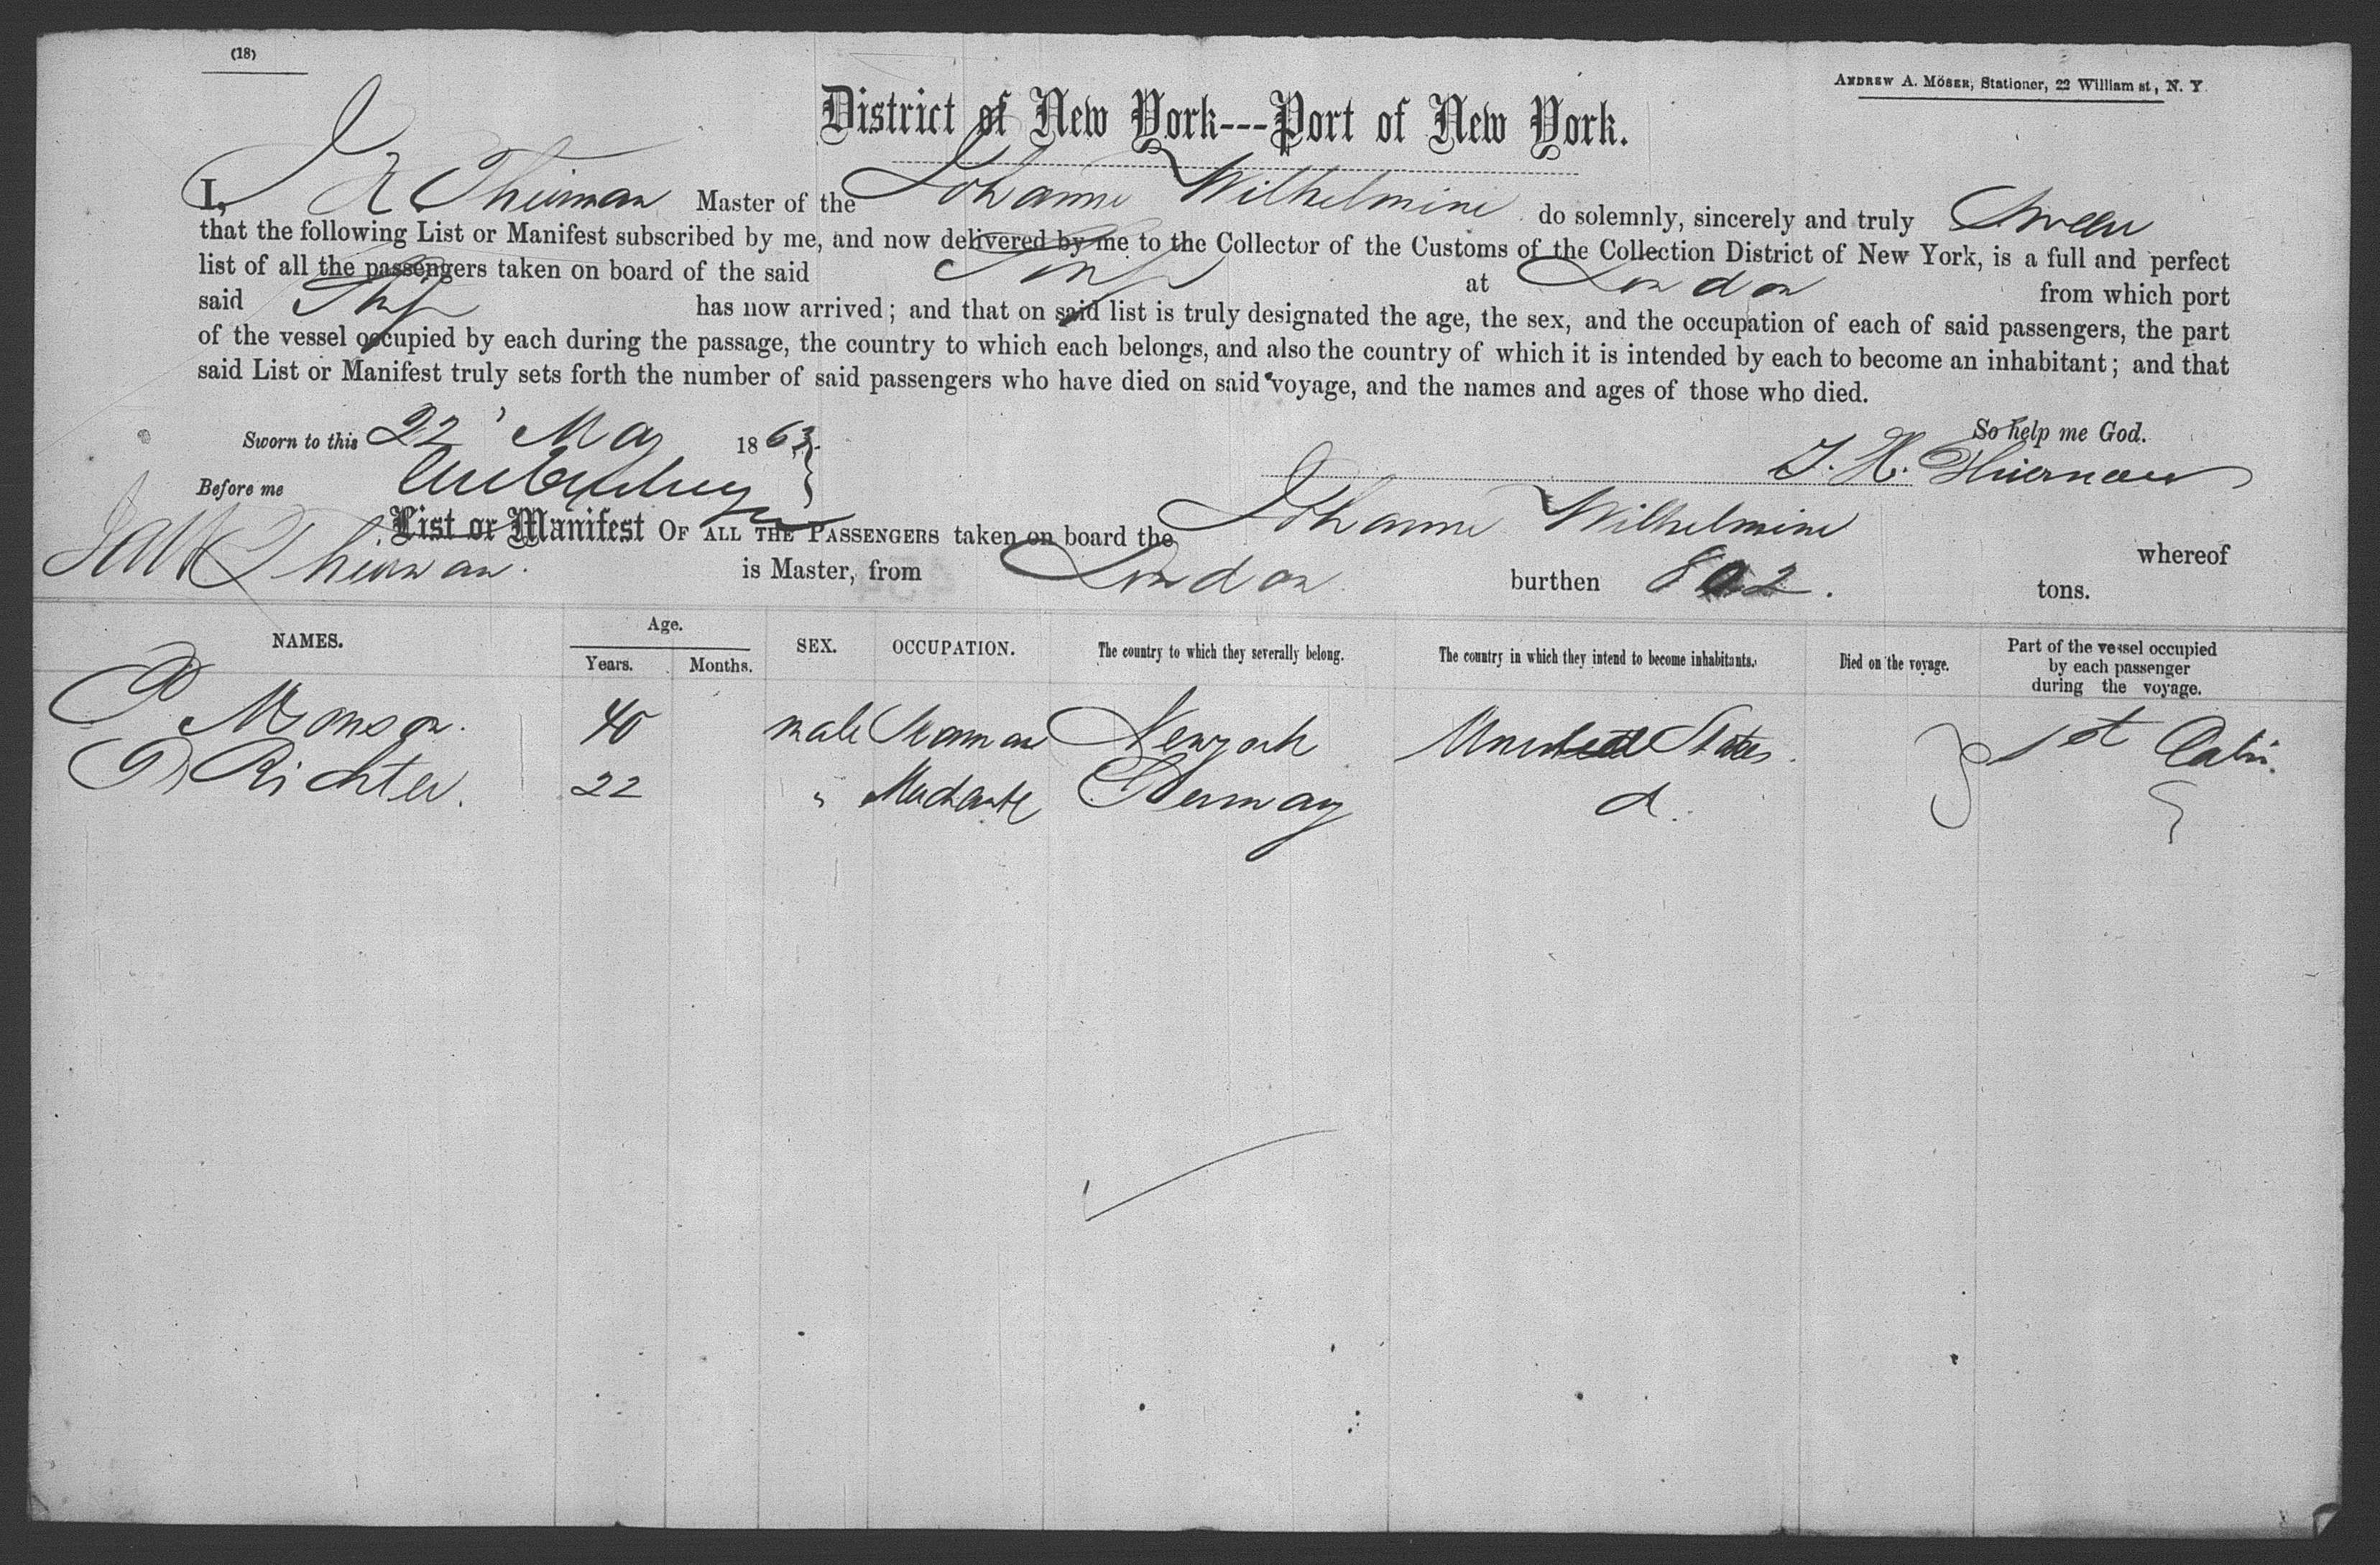 (18)
ANDREW A. MÖSER, Stationer, 22 William st, N. Y.
District of New York---Port of New York.
I, J H Thierman Master of the Johanne Wilhelmine do solemnly, sincerely and truly Swear
that the following List or Manifest subscribed by me, and now delivered by me to the Collector of the Customs of the Collection District of New York, is a full and perfect
list of all the passengers taken on board of the said Ship at London from which port
said Ship has now arrived; and that on said list is truly designated the age, the sex, and the occupation of each of said passengers, the part
of the vessel occupied by each during the passage, the country to which each belongs, and also the country of which it is intended by each to become an inhabitant; and that
said List or Manifest truly sets forth the number of said passengers who have died on said voyage, and the names and ages of those who died.
So help me God.
Sworn to this 22 May 1863
J. H. Thierman
Before me
List or Manifest OF ALL THE PASSENGERS taken on board the Johanne Wilhelmine whereof
Thierman. is Master, from London burthen 802. tons.
NAMES. Age. Years. Months. SEX. OCCUPATION. The country to which they severally belong. The country in which they intend to become inhabitants. Died on the voyage. Part of the vessel occupied by each passenger during the voyage.
P Monson. 40 male Seaman Newyork United States. 1st Cabin
Richter. 22 " Germany d.